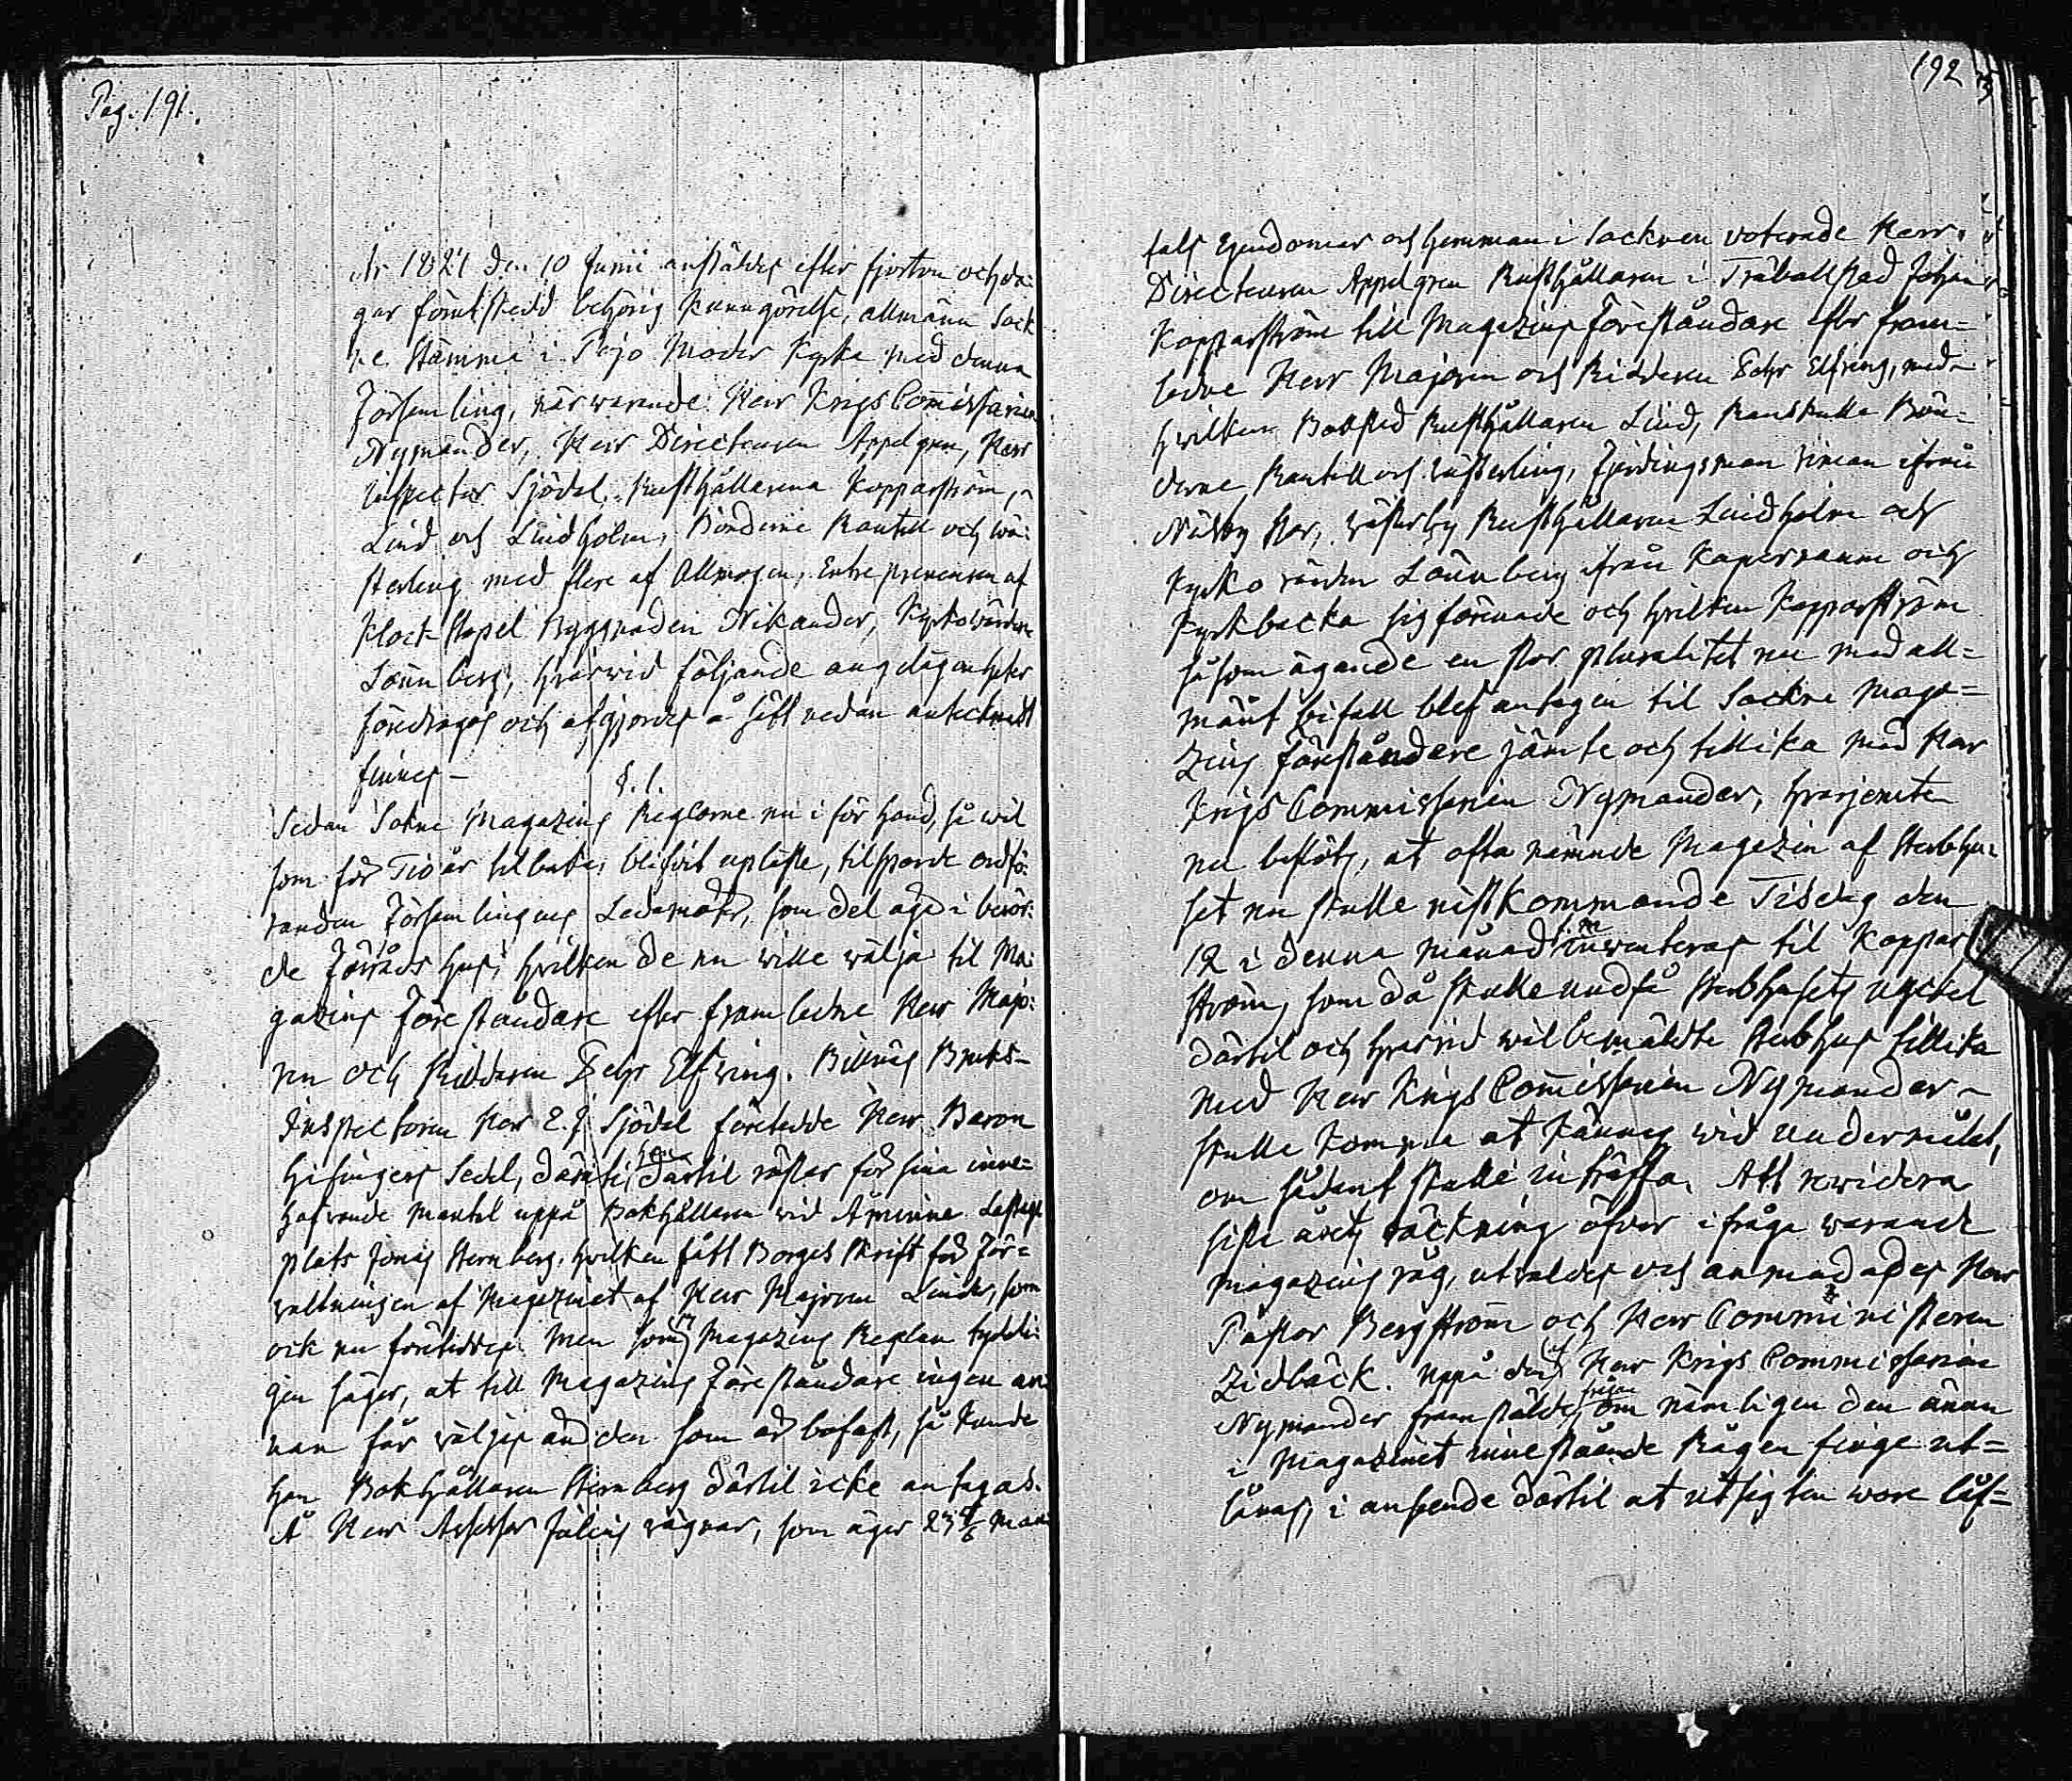 Pag. 191.
År 1821 den 10 Junii anstäldes efter fjorton och da:
gar förut skedd behörig Kunngörelse, allmänn Sock
ne Stämma i Pojo Moder Kyrka med denna
Församling, närwarande Herr KrigsCommissarien
Nymander, Herr Directeuren Appelgren, Herr
Inspector Sjödal, Rusthållarena Kopparström,
Lind och Lindholm, Bönderne Rantell och Wä:
sterling med flere af Allmogen, Entreprenenren af
Klock Stapel Byggnaden Nikander, Kyrkowärden
Lönnberg, hvarwid följande angelägenheter
föredrogos och afgjordes å sätt nedan antecknadt
finnes –
§. 1.
Sedan Sokne Magazins Reglorne nu i för hand, så wäl
som för Tio år tilbaka, blifvit upläste, tilsporde ordfö:
randen Församlingens Ledamöter, som del ägde i berör:
de Förråds hus, hvilken de nu wille wälja til Ma:
gazins Föreståndare efter framledne Herr Majo:
ren och Riddaren Elfving. Billnäs Bruks-
Inspectoren Herr E. J. Sjödal företedde Herr Baron
Hisingers Sedel, däruti han därtil röstar för sina inne-
hafvande Mantal uppå Bokhållaren wid Åminne Lastage
plats Jonas Sternberg, hvilken fått Borges Skrift för För-
waltningen af Magazinet af Herr Majoren Linder, som
ock nu företeddes. Men som Magazins Reglan tydeli:
gen säger, at till Magazins Föreståndare ingen an
nan får wäljas än den som är bofast, så kunde
Herr Bokhållaren Sternberg därtil icke antagas.
Å Herr Assessor Julins wägnar, som äger 23 Man
192
tals Egendomar och hemman i Socknen voterade Herr
Directeuren Appelgren Rusthållaren i Träbollstad Johan
Kopparström till Magazins Föreståndare efter fram-
ledne Herr Majoren och Riddaren Elfving, med
hvilken Bollstad Rusthållaren Lind, Bön-
derne Rantell och Wästerling, Fjerdingsman ifrån
Näsby Rusthållaren Lindholm och
Kyrko wärden Lönnberg ifrån och
Kyrkbacka sig förenade och hvilken Kopparström
såsom ägande en stor pluralitet nu med all-
mänt bifall blef antagen til Sockne Maga-
zins Föreståndare jämte och tillika med Herr
KrigsCommissarien Nymander, hvarjemte
nu beslöts, at ofta nämnde Magazin af Sterbhu-
set nu skulle nästkommande Tisdag den
12 i denna månad inwenteras til Koppar
ström, som då skulle undfå Sterbhusets nyckel
därtil och hvarvid wälbemäldte Sterbhus tillika
med Herr KrigsCommissarien Nymander
skulle komma at kännas wid undermålet,
om sådant skulle inträffa. Att revidera
sista årets räckning öfver i fråga warande
magazins råg, utvaldes och anmodades Herr
Pastor Bergström och Herr Comministeren
Zidbäck. Uppå den af Herr KrigsCommissarien
Nymander framstälde frågan om nämligen den ännu
i Magazinet innestående Rågen finge ut-
lånas, i anseende därtil at utsigten wore